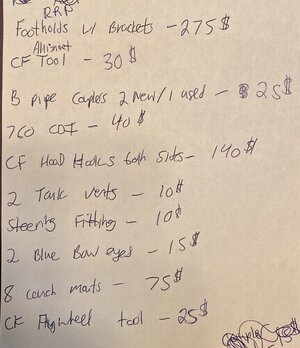 RRP
Footholds w/ Brackets - 275$
CF Tool - 30$
B pipe Couplers 2 New/1 used - 25$
760 CDI - 40$
CF Hood Hooks both sides - 140$
2 Tank vents - 10$
Steering Fitting - 10$
2 Blue Bow eyes - 15$
8 couch mounts - 75$
CF Flywheel tool - 25$